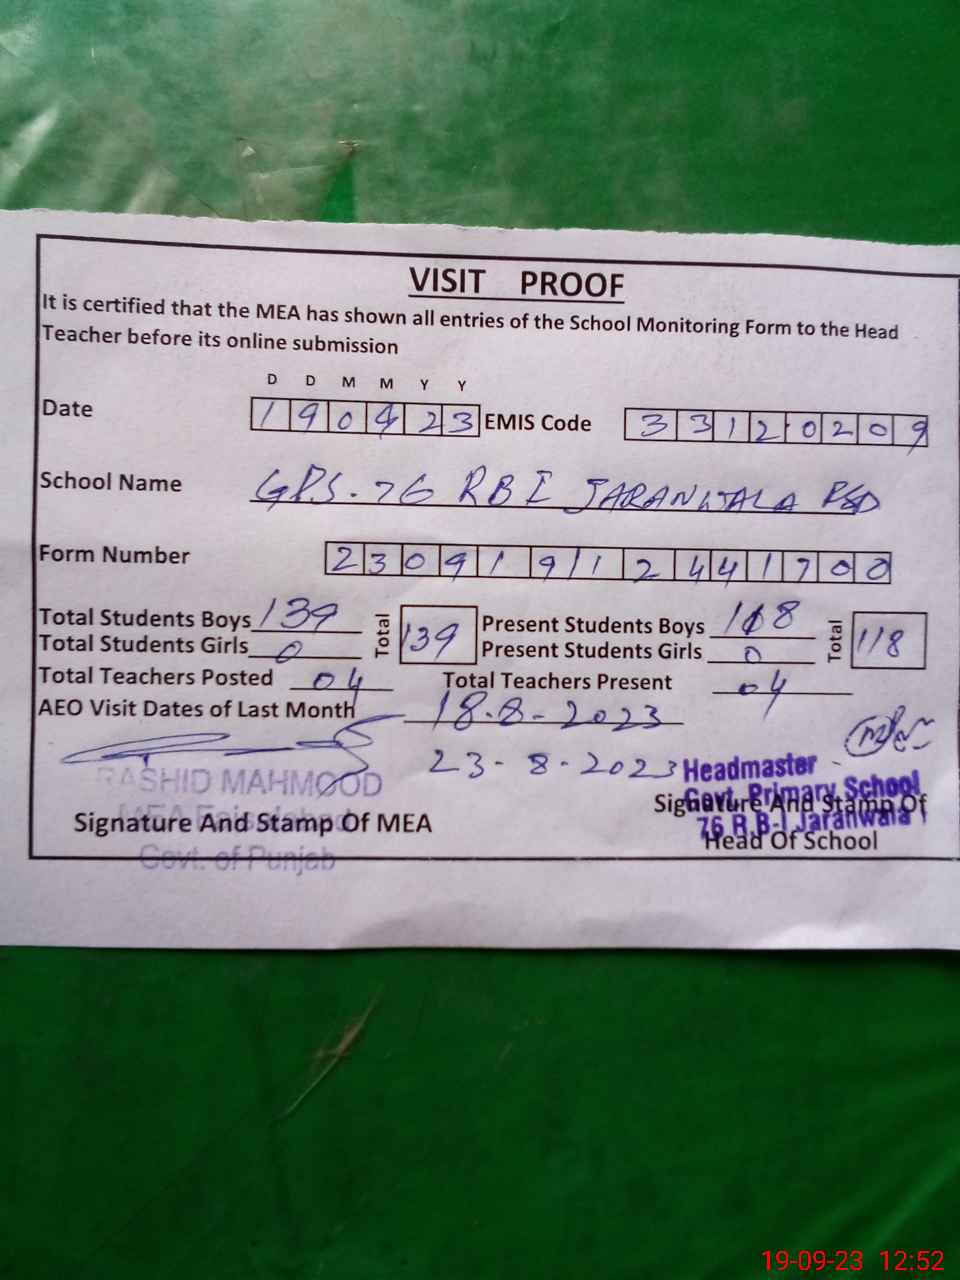 VISIT PROOF
It is certified that the MEA has shown all entries of the School Monitoring Form to the Head
Teacher before its online submission
D D M M Y Y
Date 190923 EMIS Code 33120209
School Name GPS. 76 RB I JARANWALA FSD
Form Number 230919112441700
Total Students Boys 139 Total 139 Present Students Boys 118 Total 118
Total Students Girls 0 Present Students Girls 0
Total Teachers Posted 04 Total Teachers Present 04
AEO Visit Dates of Last Month 18.8-2023
23-8-2023
RASHID MAHMOOD
MEA Faisalabad
Govt. of Punjab
Signature And Stamp Of MEA
Headmaster
Govt. Primary School
76 R.B-I Jaranwala
Signature And Stamp Of
Head Of School
19-09-23 12:52